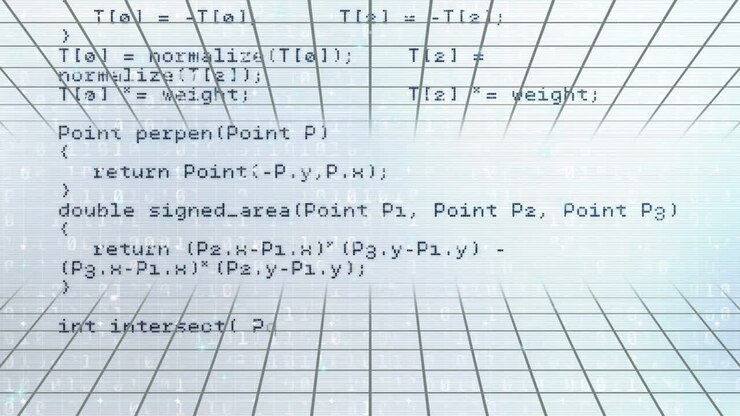 T[0] = -T[0];          T[2] = -T[2];
}
T[0] = normalize(T[0]);      T[2] =
normalize(T[2]);
T[0] *= weight;                T[2] *= weight;
Point perpen(Point P)
{
return Point(-P.y,P.x);
}
double signed_area(Point P1, Point P2, Point P3)
{
return (P2.x-P1.x)*(P3.y-P1.y) -
(P3.x-P1.x)*(P2.y-P1.y);
}
int intersect( Po